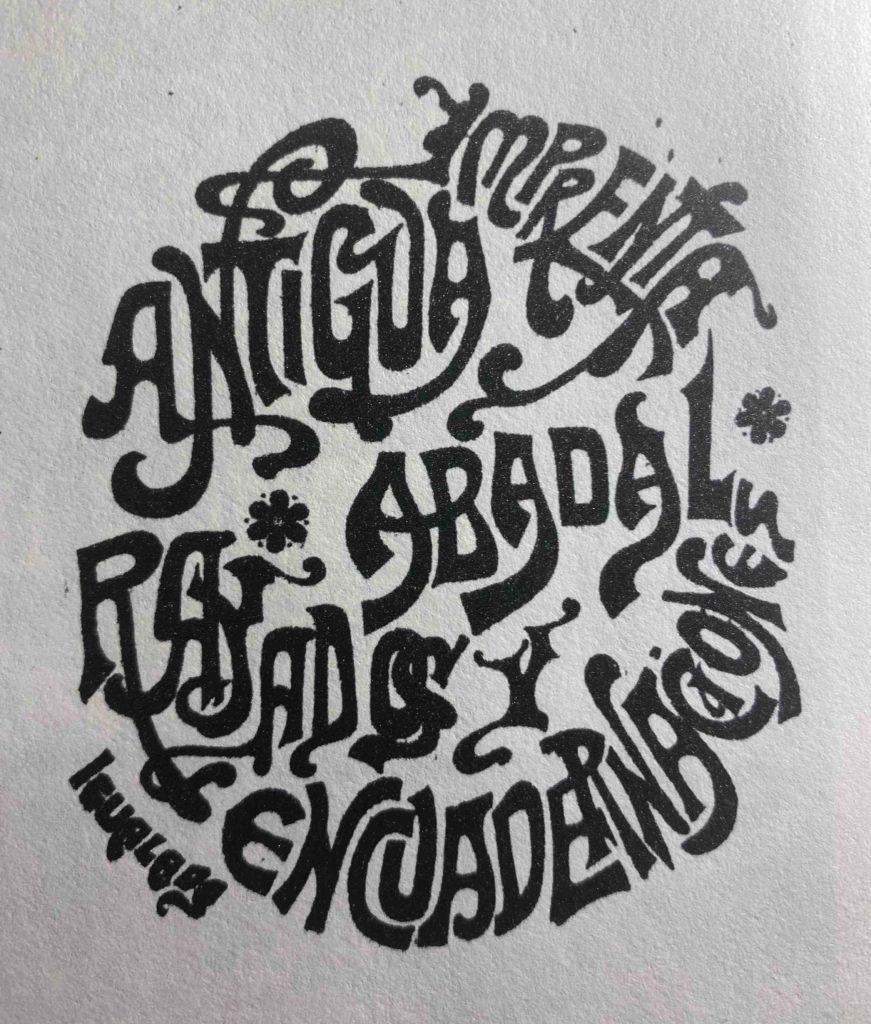 ANTIGUA
IMPRENTA
ABADAL
RAYADOS Y
ENCUADERNACIONES
IGUALADA